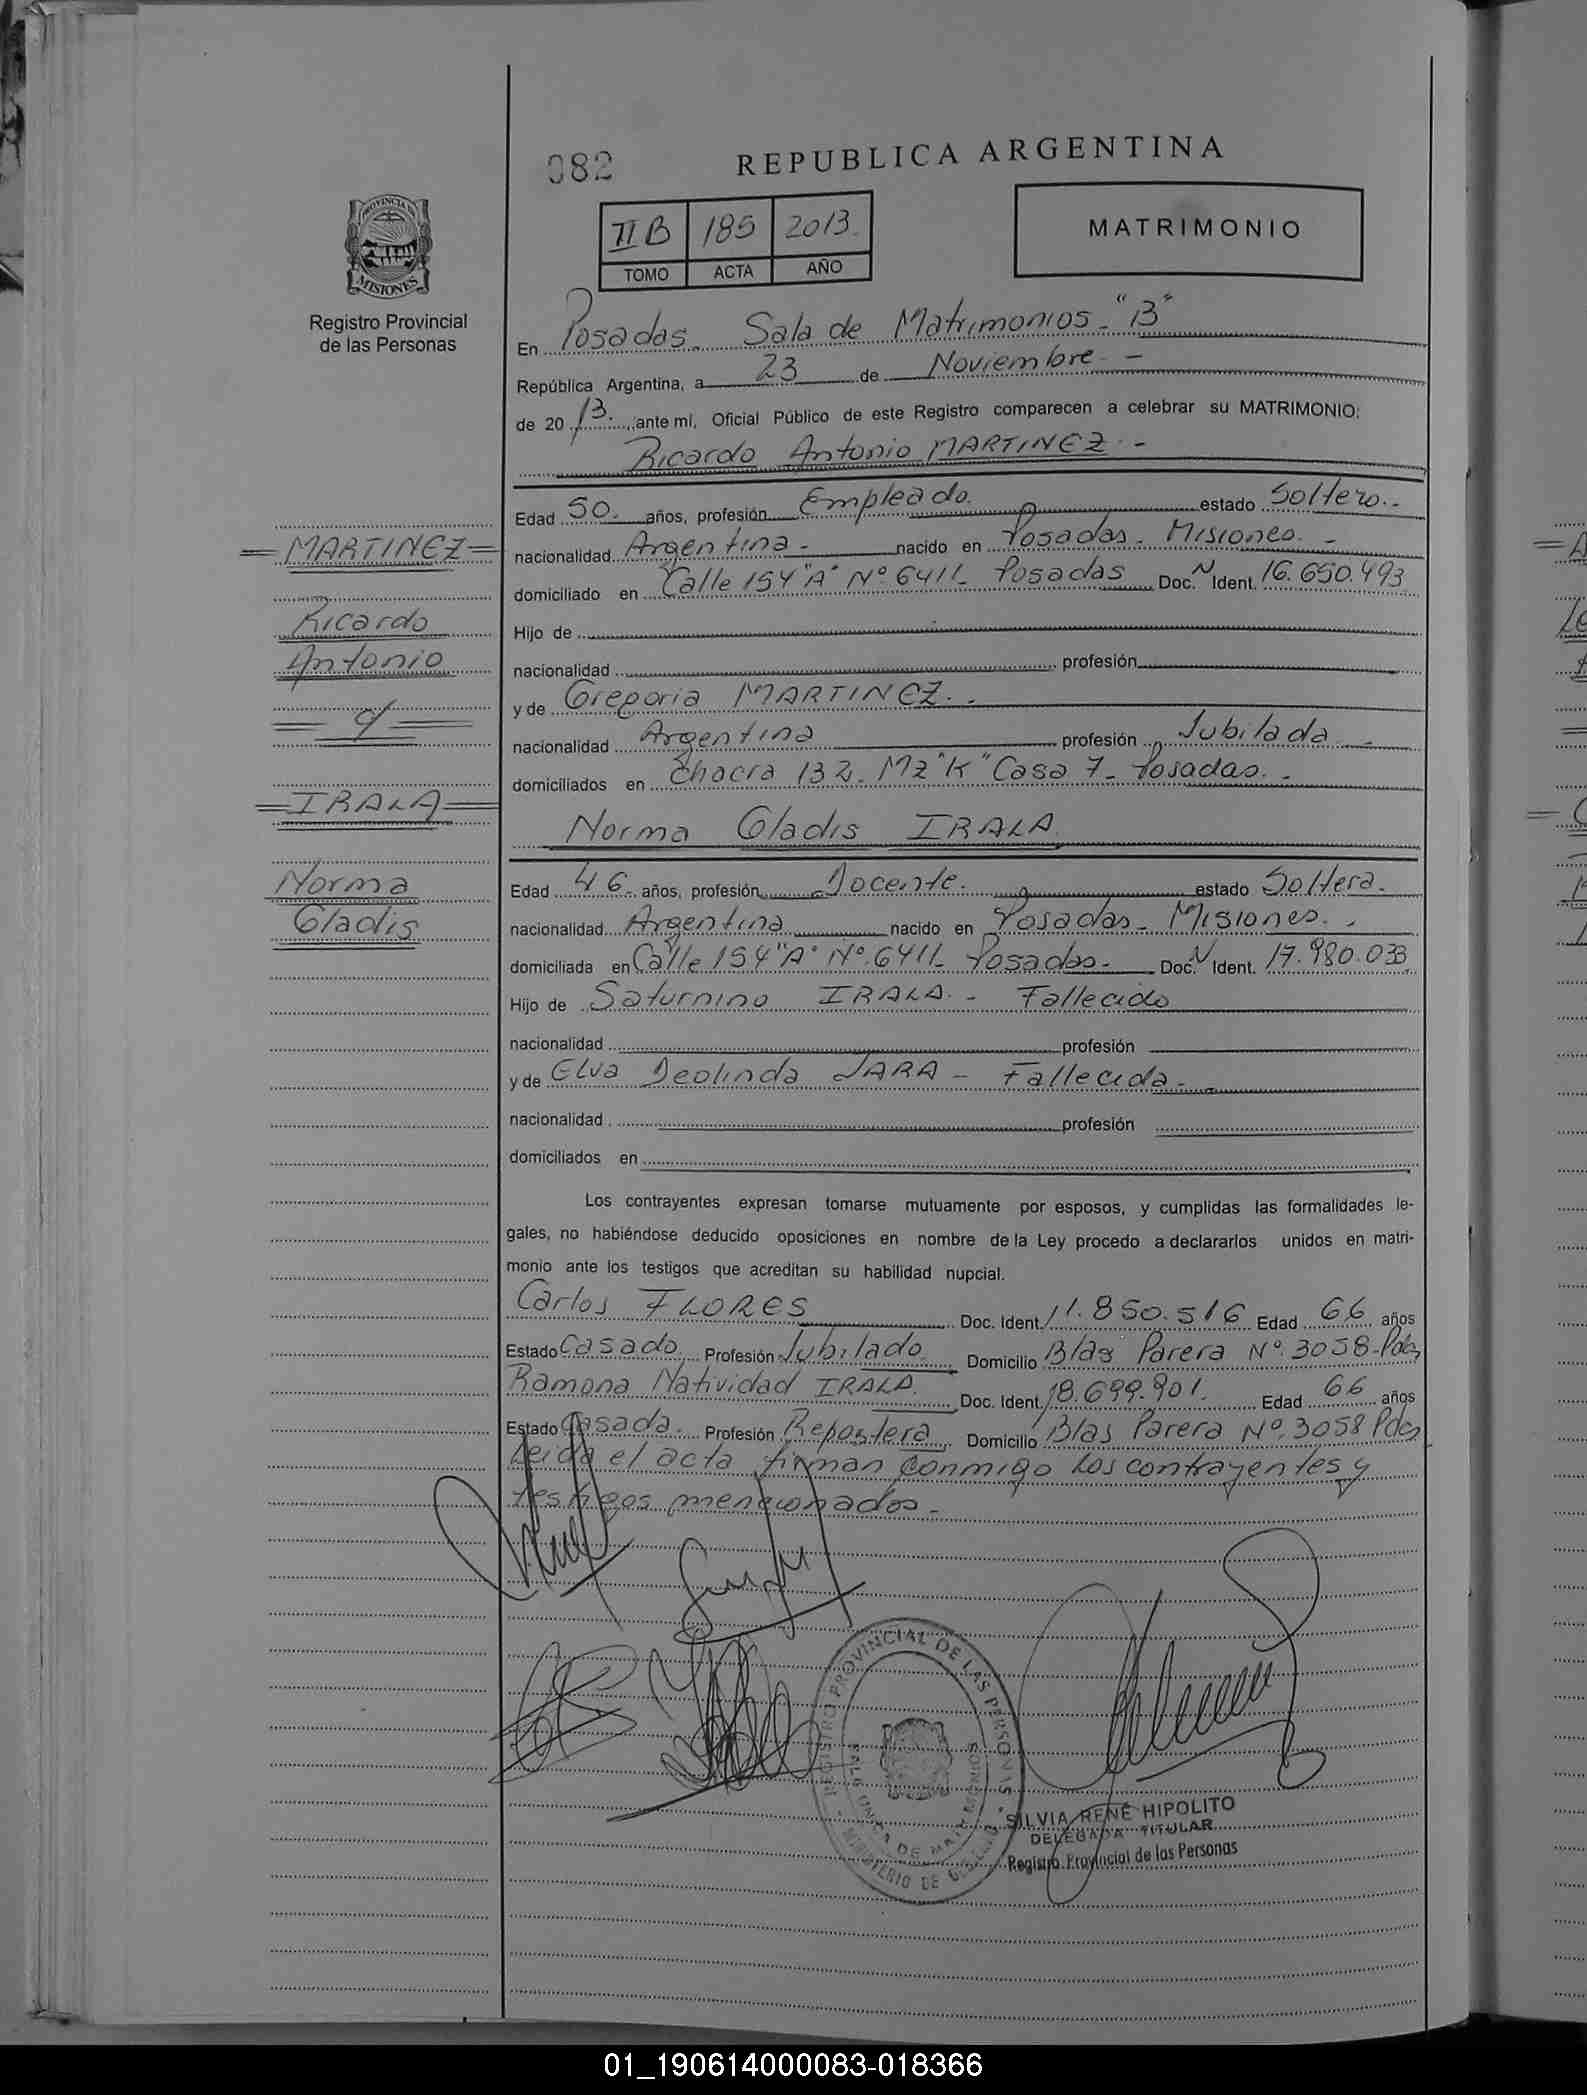 082
REPUBLICA ARGENTINA
PROVINCIA DE
MISIONES
Registro Provincial
de las Personas
II B 185 2013.
TOMO ACTA AÑO
MATRIMONIO
En Posadas. Sala de Matrimonios - "B"
República Argentina, a 23 de Noviembre. -
de 20 13. ,ante mí, Oficial Público de este Registro comparecen a celebrar su MATRIMONIO:
Ricardo Antonio MARTINEZ. -
Edad 50. años, profesión Empleado. estado Soltero. -
nacionalidad Argentina - nacido en Posadas - Misiones. -
domiciliado en Calle 154 "A" Nº 6411- Posadas Doc. N Ident. 16.650.493
Hijo de
nacionalidad profesión
y de Gregoria MARTINEZ. -
nacionalidad Argentina profesión Jubilada -
domiciliados en Chacra 132. Mz "K" Casa 7- Posadas. -
Norma Gladis IRALA.
Edad 46. años, profesión Docente. estado Soltera.
nacionalidad Argentina nacido en Posadas - Misiones. -
domiciliada en Calle 154 "A" Nº 6411- Posadas. Doc. N Ident. 17.980.033
Hijo de Saturnino IRALA. - Fallecido
nacionalidad profesión
y de Elva Deolinda JARA - Fallecida -
nacionalidad profesión
domiciliados en
Los contrayentes expresan tomarse mutuamente por esposos, y cumplidas las formalidades le-
gales, no habiéndose deducido oposiciones en nombre de la Ley procedo a declararlos unidos en matri-
monio ante los testigos que acreditan su habilidad nupcial.
Carlos FLORES Doc. Ident. 11.850.516 Edad 66 años
Estado Casado Profesión Jubilado Domicilio Blas Parera Nº 3058-Pdas
Ramona Natividad IRALA. Doc. Ident. 18.699.901. Edad 66 años
Estado Casada. Profesión Repostera Domicilio Blas Parera Nº 3058 Pdas
Leida el acta firman conmigo los contrayentes y
testigos mencionados -
= MARTINEZ =
Ricardo
Antonio
= c/ =
= IRALA =
Norma
Gladis
REGISTRO PROVINCIAL DE LAS PERSONAS
SALA UNICA DE MATRIMONIOS
MINISTERIO DE
SILVIA RENÉ HIPOLITO
DELEGADA TITULAR
Registro Provincial de las Personas
01_190614000083-018366